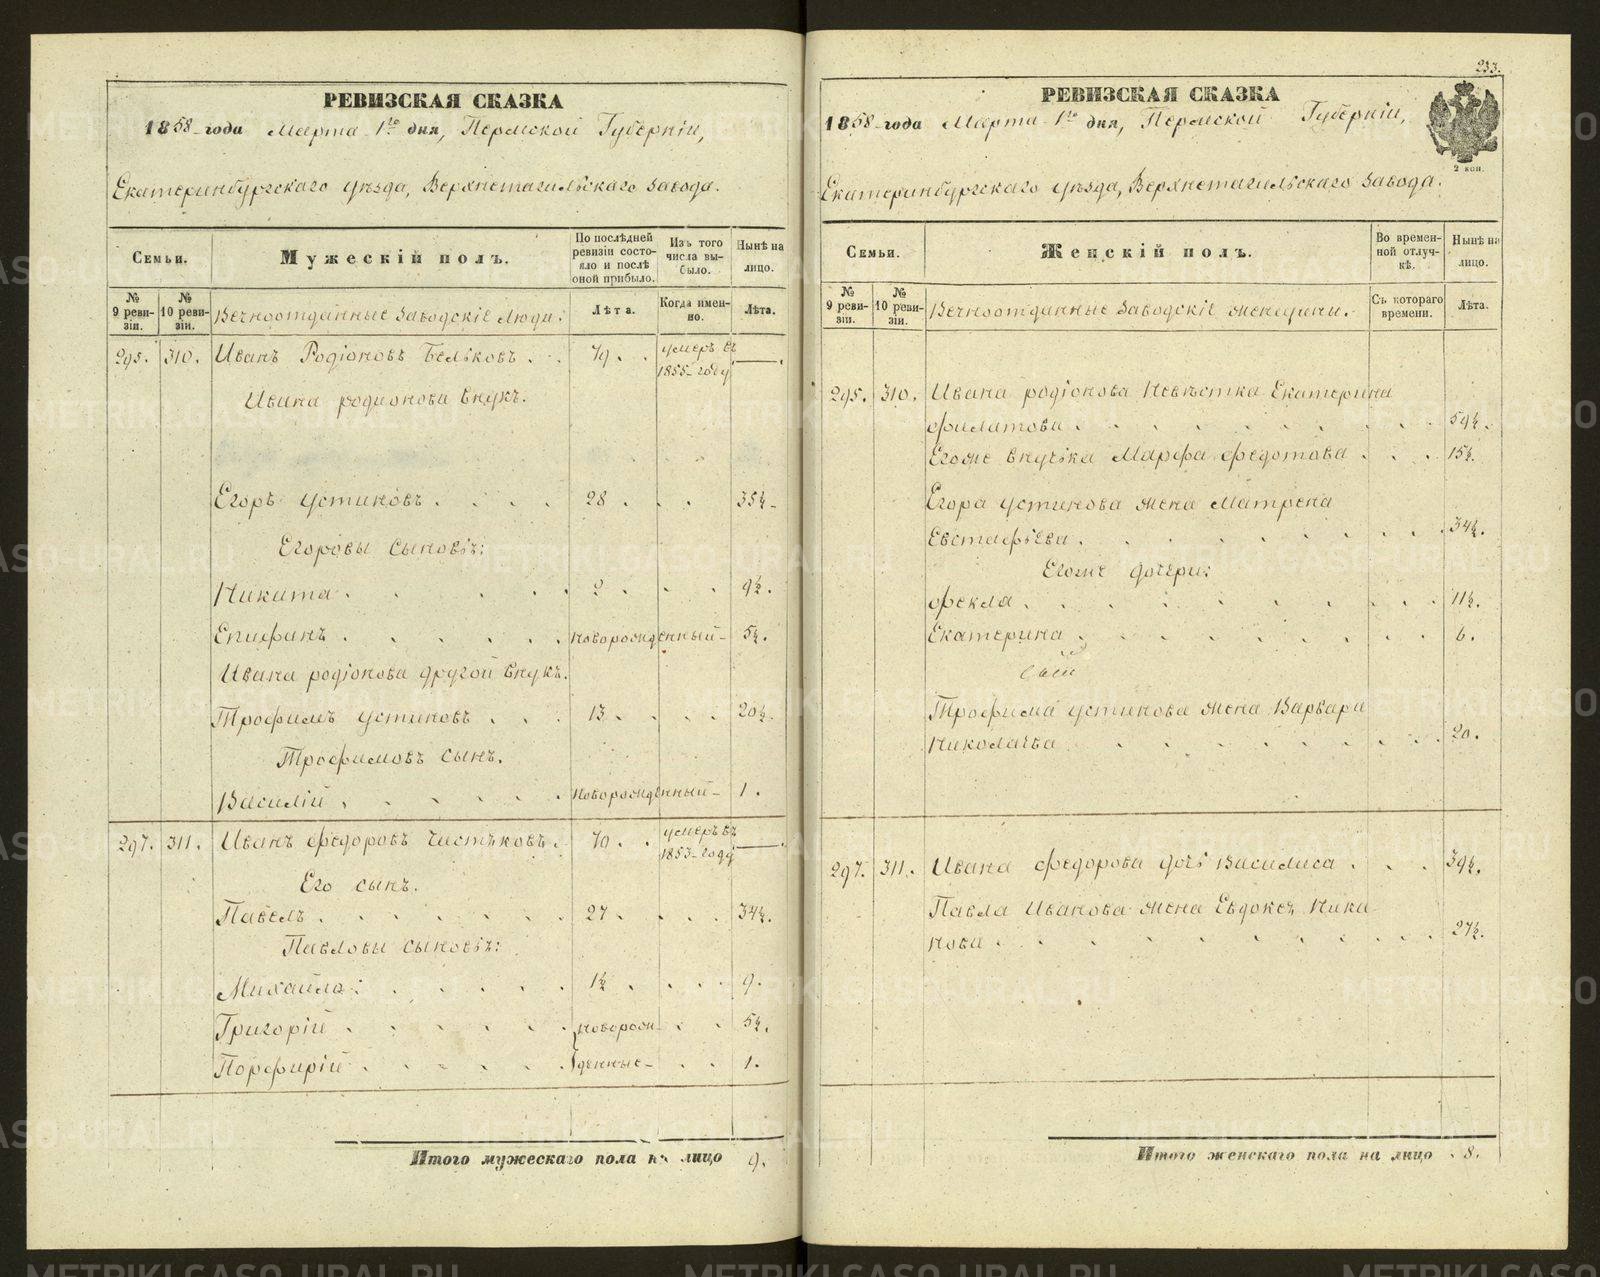 РЕВИЗСКАЯ СКАЗКА
1858 года Марта 1го дня, Пермской Губерніи,
Екатеринбургскаго уѣзда, Верхнетагильскаго завода.
Семьи.
Мужескій полъ.
По послѣдней ревизіи состояло и послѣ оной прибыло.
Изъ того числа выбыло.
Нынѣ на лицо.
№ 9 ревизіи.
№ 10 ревизіи.
Вечноотданные заводскіе люди:
Лѣта.
Когда именно.
Лѣта.
295. 310. Иванъ Родіоновъ Бельковъ . . 79 . . умеръ въ 1855 году —
Ивана родионова внукъ.
Егоръ устиновъ . . . . 28 . . . 35½
Егоровы сыновья:
Никита . . . . . 2 . . . 9½.
Епифанъ . . . . . новорожденный 5½.
Ивана родіонова другой внукъ.
Трофимъ устиновъ . . . 13 . . . . 20½.
Трофимовъ сынъ.
Василій . . . . . новорожденный 1.
297. 311. Иванъ федоровъ Чистяковъ . 70 . . умеръ въ 1853 году —
Его сынъ.
Павелъ . . . . . . 27 . . . . 34½.
Павловы сыновья:
Михаила . . . . . . 1½ . . . . 9.
Григорій . . . . . . новорож- . . 5½.
Порфирій . . . . . . денные . . 1.
Итого мужескаго пола на лицо 9.
233.
РЕВИЗСКАЯ СКАЗКА
1858 года Марта 1го дня, Пермской Губерніи,
2 коп.
Екатеринбургскаго уѣзда, Верхнетагильскаго завода.
Семьи.
Женскій полъ.
Во временной отлучкѣ.
Нынѣ на лицо.
№ 9 ревизіи.
№ 10 ревизіи.
Вечноотданные заводскіе женщины.
Съ котораго времени.
Лѣта.
295. 310. Ивана родіонова Невѣстка Екатерина
филатова . . . . . . . . 59½.
Егоже внучька Марфа федотова . . . 15½
Егора устинова жена Матрена
Евстафіева . . . . . . . . 34½.
Егожъ дочери:
фекла . . . . . . . . 11½.
Екатерина . . . . . . . . 6.
Трофима устинова жена Варвара
Николаева . . . . . . . 20.
297. 311. Ивана федорова дочь Василиса . . . 39½.
Павла Иванова жена Евдокея Ника
нова . . . . . . . . 27½.
Итого женскаго пола на лицо 8.
METRIKI.GASO-URAL.RU